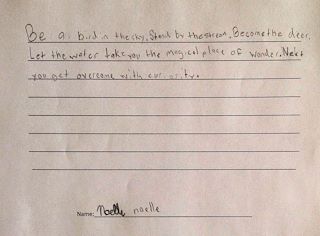 Be a bird in the sky. Stand by the stream. Become the deer.
Let the water take you the magical place of wonder. Next
you get overcome with curiosity.
Name: Noelle noelle